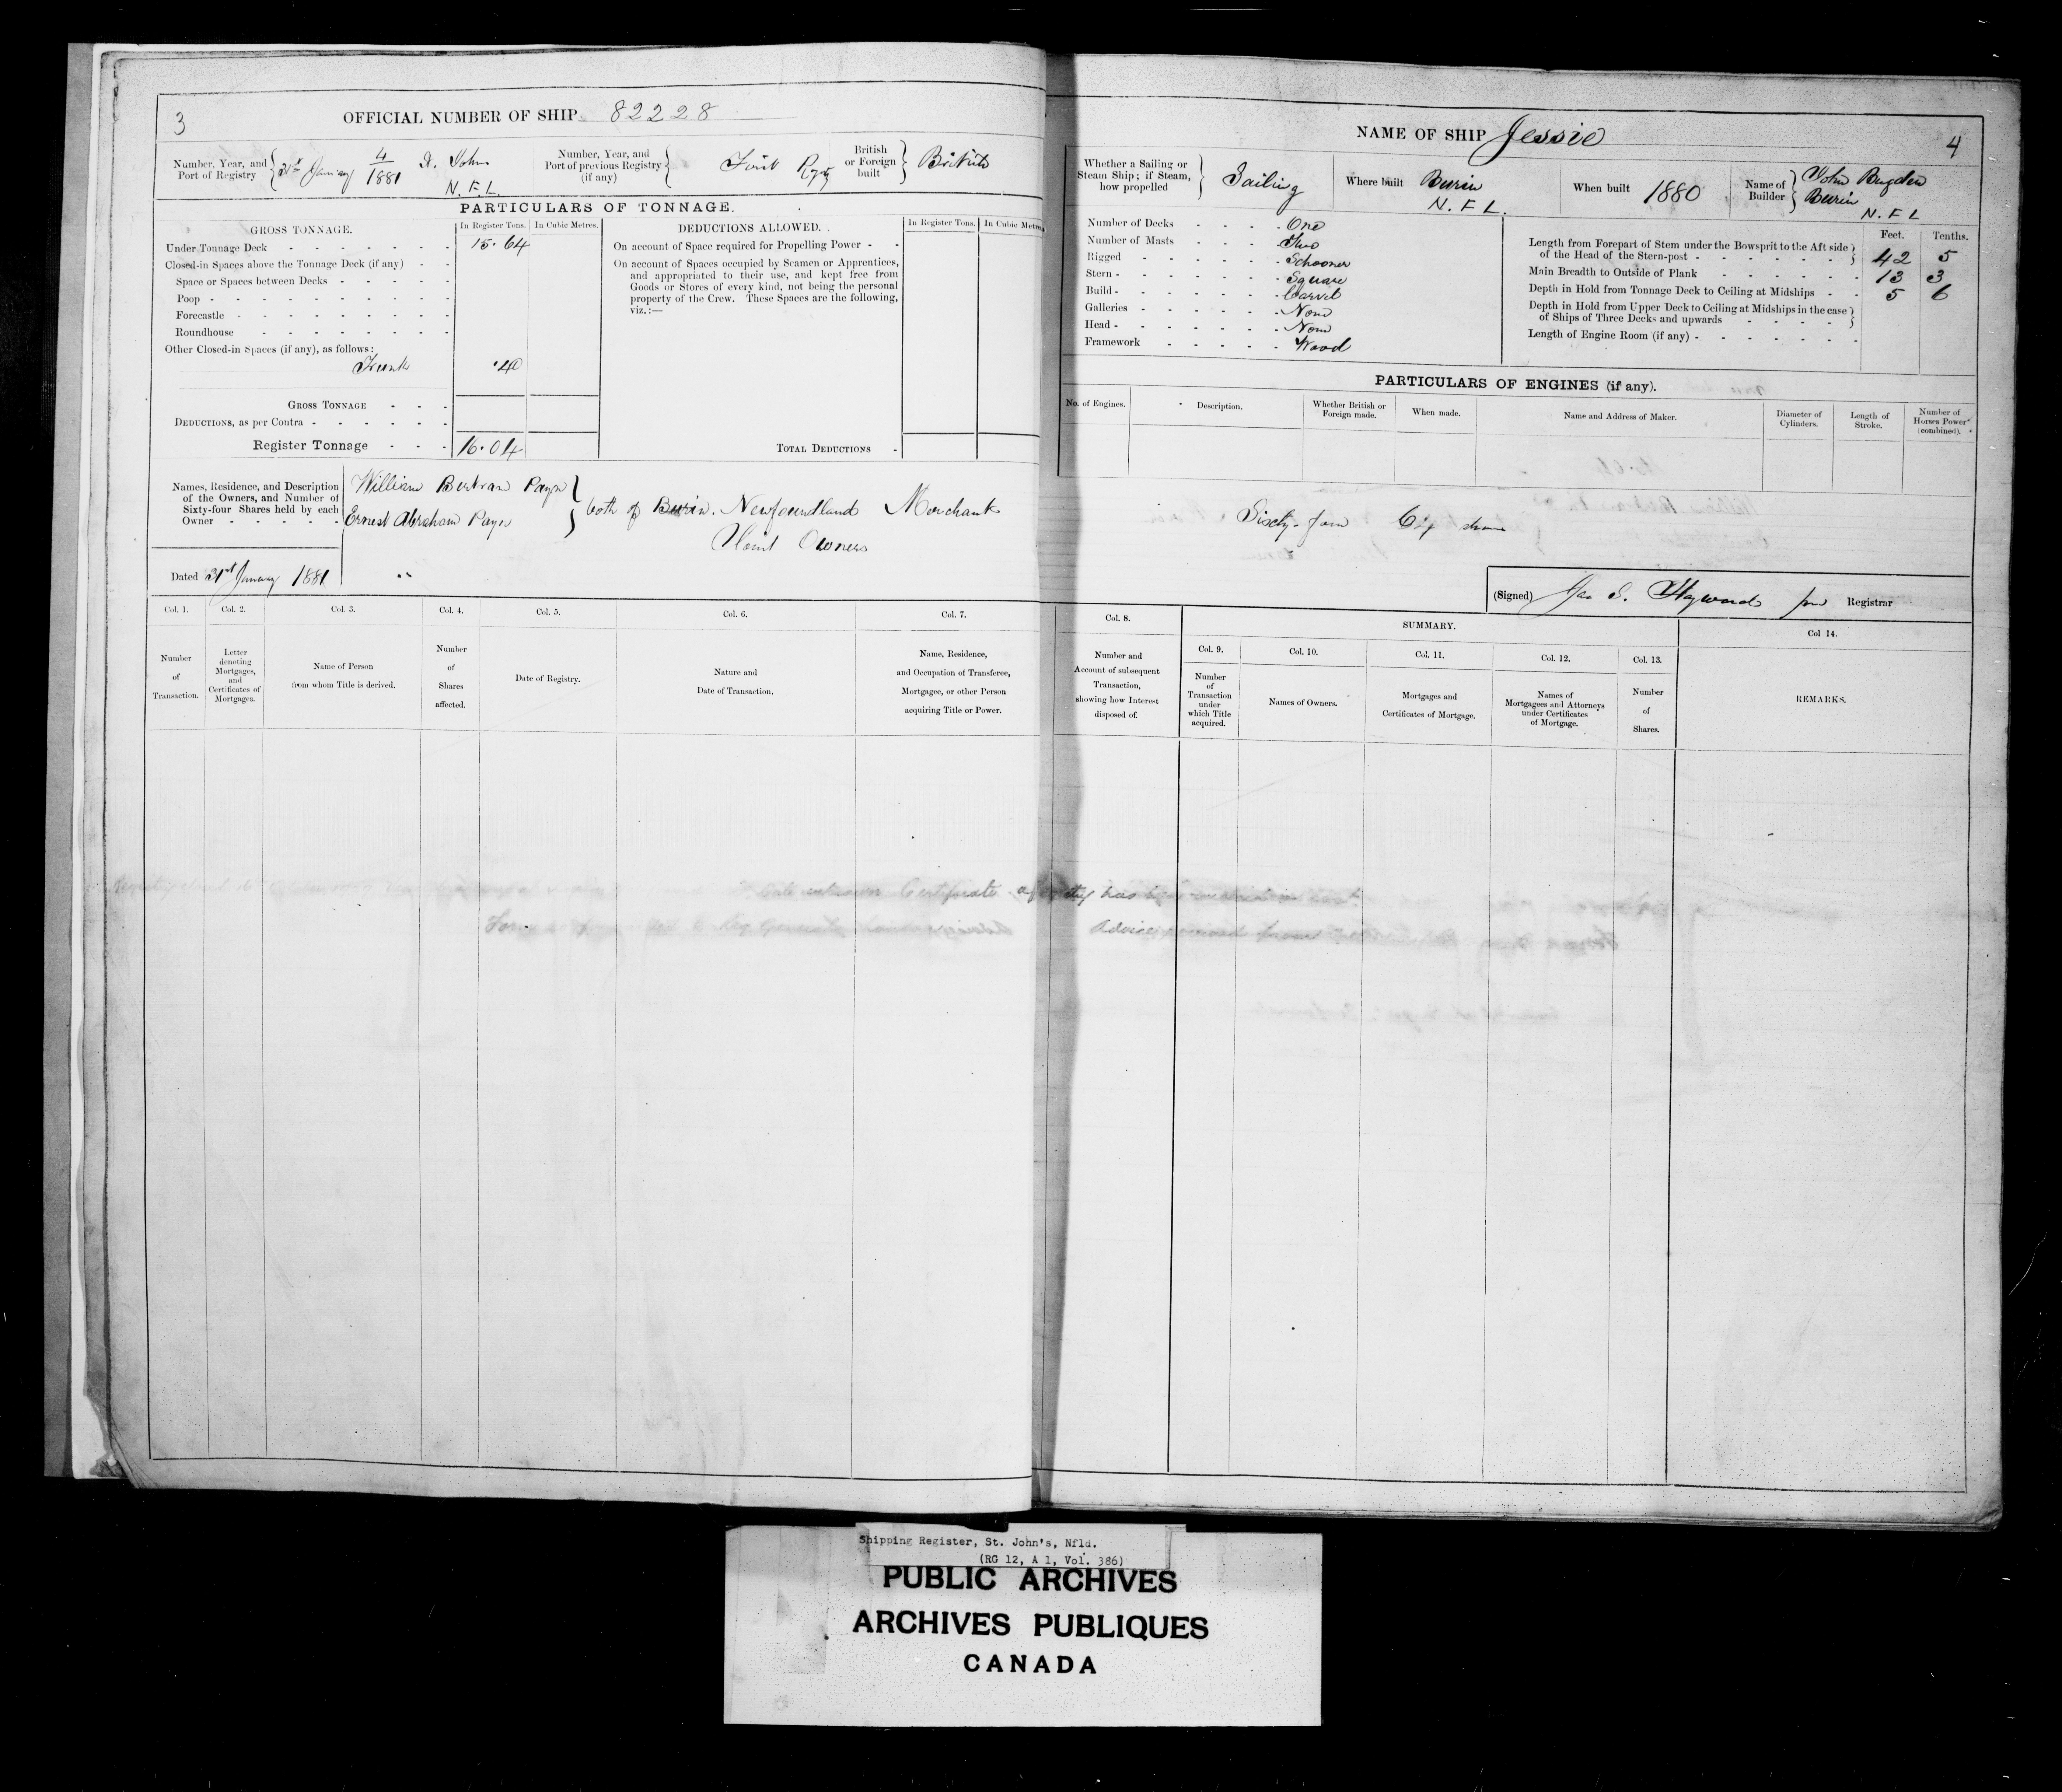 3
OFFICIAL NUMBER OF SHIP 82228
Number, Year, and Port of Registry
31st January 4/1881 St. Johns N.F.L.
Number, Year, and Port of previous Registry (if any)
First Regy
British or Foreign built
British
PARTICULARS OF TONNAGE.
GROSS TONNAGE.
In Register Tons.
In Cubic Metres.
Under Tonnage Deck 15.64
Closed-in Spaces above the Tonnage Deck (if any)
Space or Spaces between Decks
Poop
Forecastle
Roundhouse
Other Closed-in Spaces (if any), as follows:
Trunk .40
GROSS TONNAGE
DEDUCTIONS, as per Contra
Register Tonnage 16.04
DEDUCTIONS ALLOWED.
In Register Tons.
In Cubic Metres
On account of Space required for Propelling Power
On account of Spaces occupied by Seamen or Apprentices,
and appropriated to their use, and kept free from
Goods or Stores of every kind, not being the personal
property of the Crew. These Spaces are the following,
viz.:—
TOTAL DEDUCTIONS
Names, Residence, and Description
of the Owners, and Number of
Sixty-four Shares held by each
Owner
William Bertram Payn
Ernest Abraham Payn
both of Burin. Newfoundland Merchants
Joint Owners
Dated 31st January 1881
Col. 1.
Number of Transaction.
Col. 2.
Letter denoting Mortgages, and Certificates of Mortgages.
Col. 3.
Name of Person from whom Title is derived.
Col. 4.
Number of Shares affected.
Col. 5.
Date of Registry.
Col. 6.
Nature and Date of Transaction.
Col. 7.
Name, Residence, and Occupation of Transferee, Mortgagee, or other Person acquiring Title or Power.
Certificate
NAME OF SHIP Jessie
4
Whether a Sailing or Steam Ship; if Steam, how propelled
Sailing
Where built Burin N.F.L.
When built 1880
Name of Builder
John Bugden Burin N.F.L
Number of Decks One
Number of Masts Two
Rigged Schooner
Stern Square
Build Carvel
Galleries None
Head None
Framework Wood
Feet. Tenths.
Length from Forepart of Stem under the Bowsprit to the Aft side of the Head of the Stern-post 42 5
Main Breadth to Outside of Plank 13 3
Depth in Hold from Tonnage Deck to Ceiling at Midships 5 6
Depth in Hold from Upper Deck to Ceiling at Midships in the case of Ships of Three Decks and upwards
Length of Engine Room (if any)
PARTICULARS OF ENGINES (if any).
No. of Engines.
Description.
Whether British or Foreign made.
When made.
Name and Address of Maker.
Diameter of Cylinders.
Length of Stroke.
Number of Horses Power (combined).
Sixty-four 64 shares
(Signed) Jas S. Hayward Registrar
Col. 8.
Number and Account of subsequent Transaction, showing how Interest disposed of.
SUMMARY.
Col. 9.
Number of Transaction under which Title acquired.
Col. 10.
Names of Owners.
Col. 11.
Mortgages and Certificates of Mortgage.
Col. 12.
Names of Mortgagees and Attorneys under Certificates of Mortgage.
Col. 13.
Number of Shares.
Col 14.
REMARKS.
Shipping Register, St. John's, Nfld.
(RG 12, A 1, Vol. 386)
PUBLIC ARCHIVES
ARCHIVES PUBLIQUES
CANADA